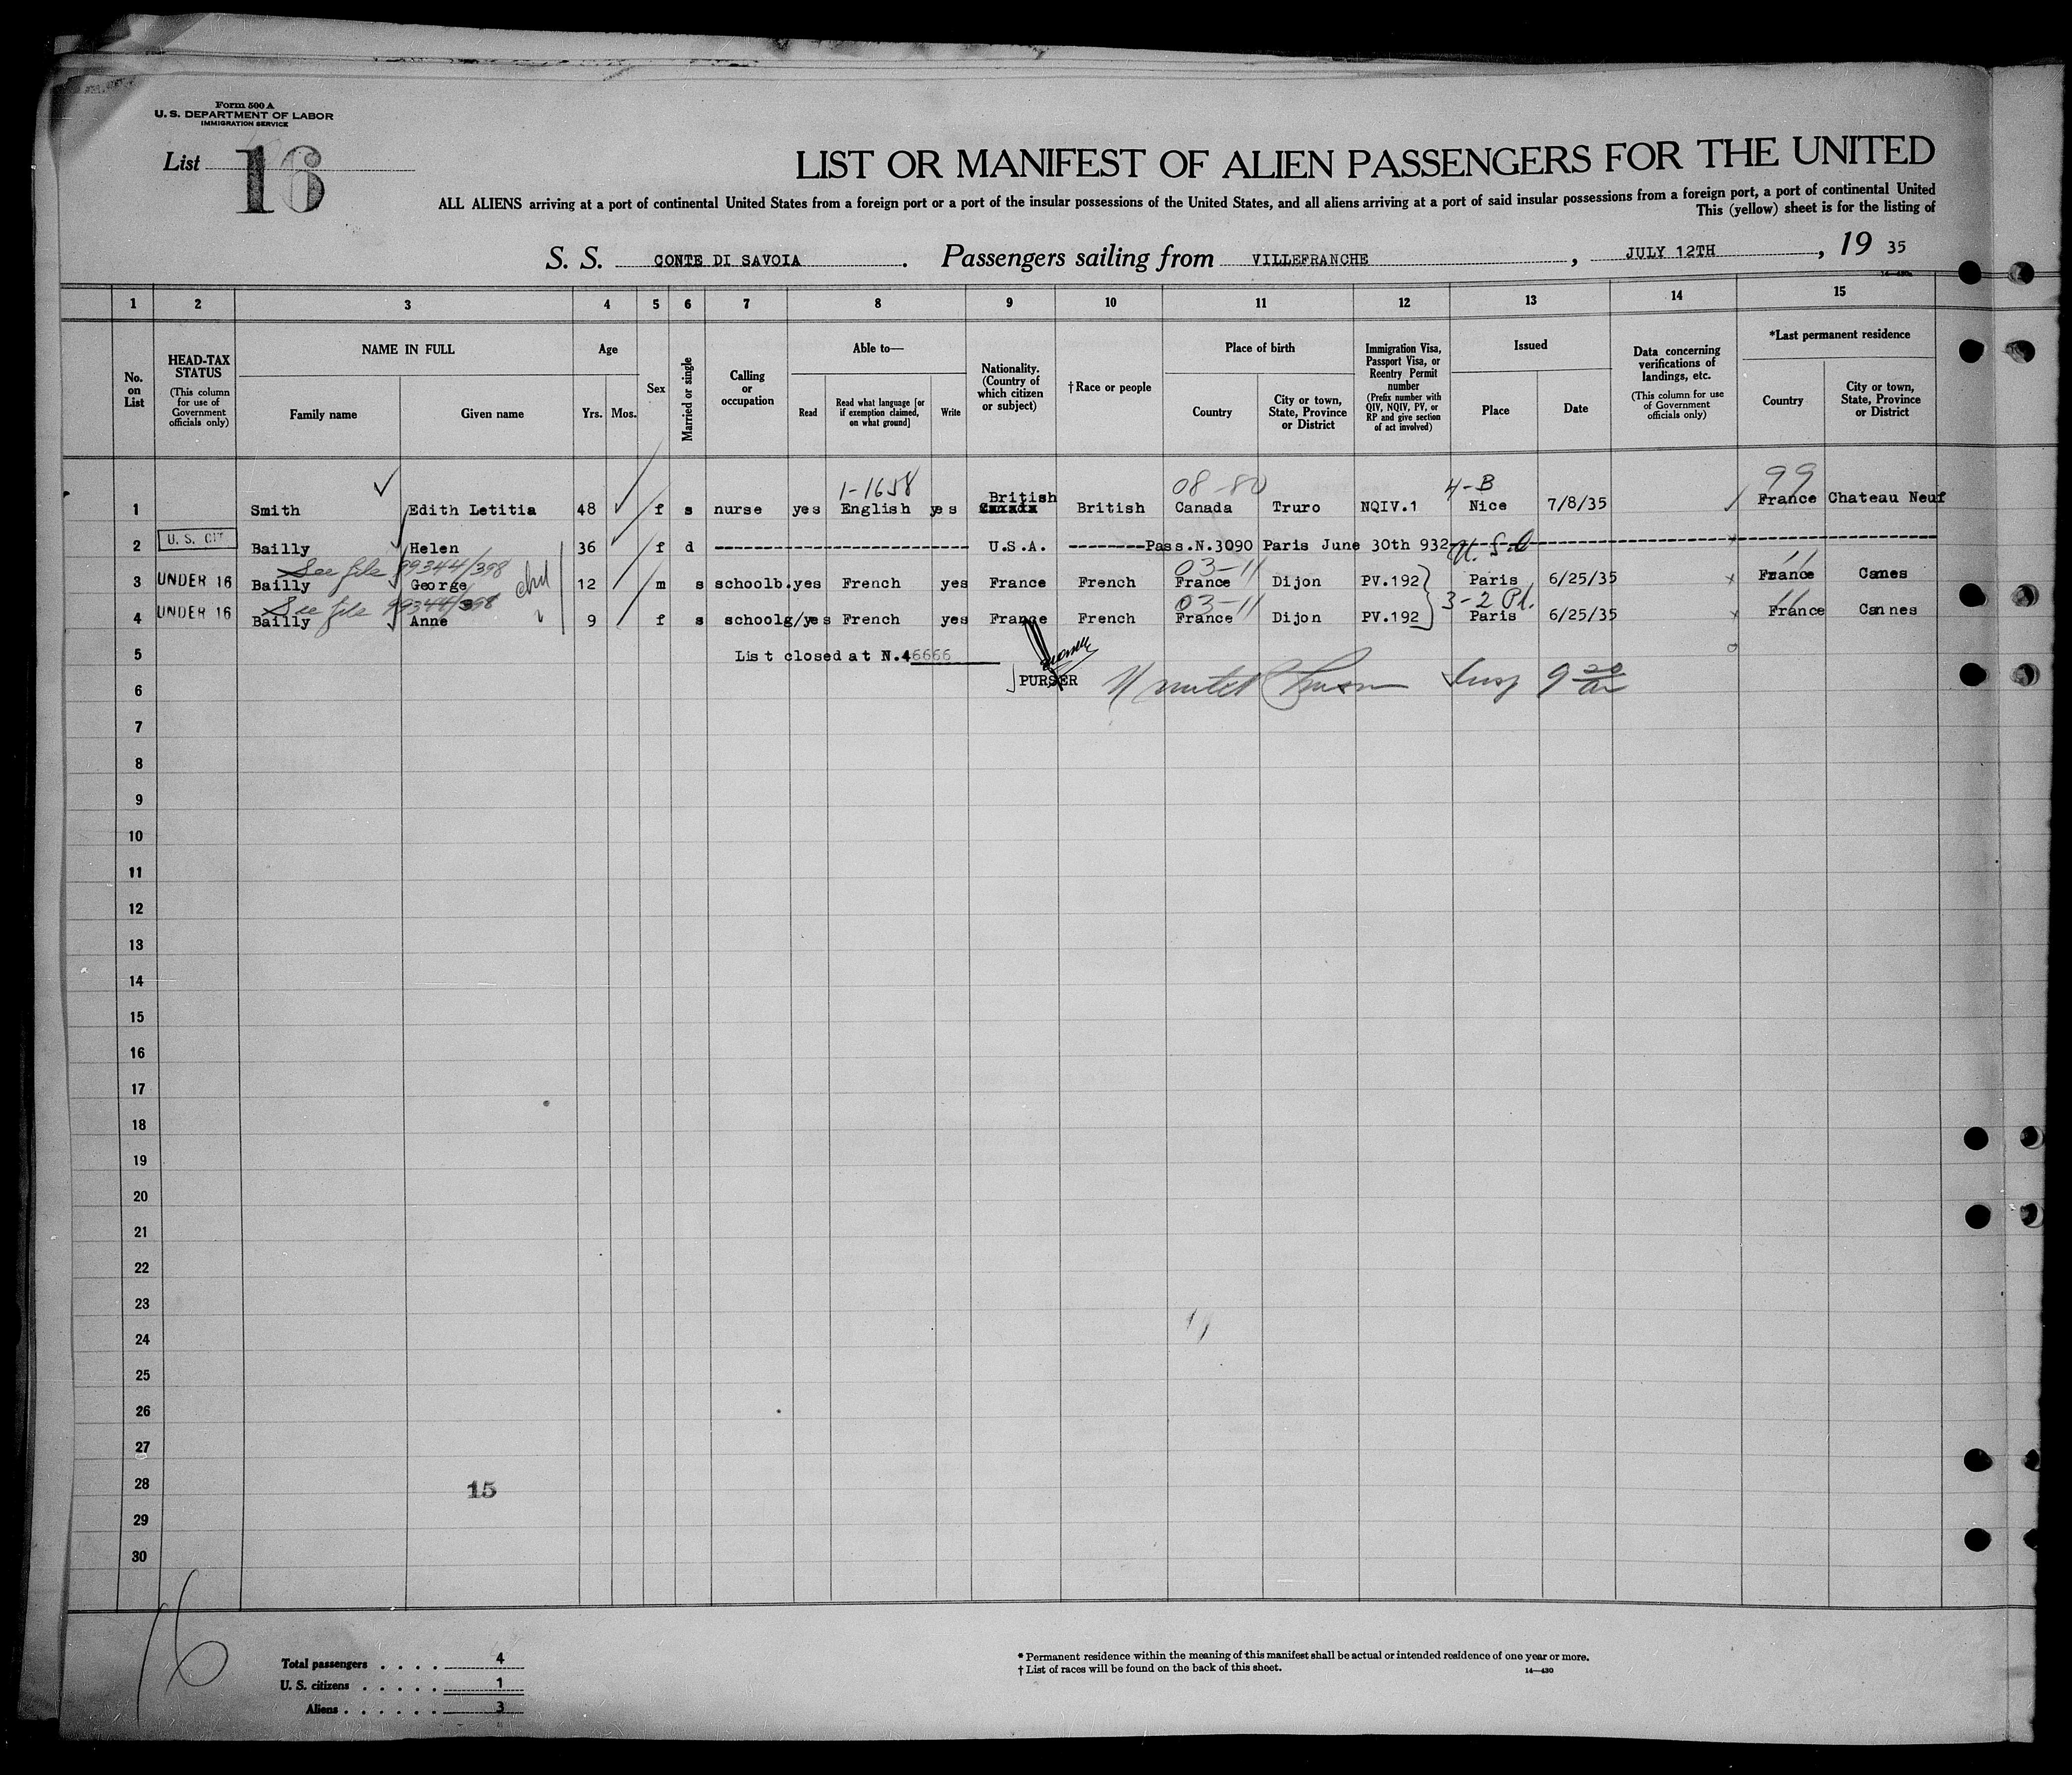 Form 500 A
U. S. DEPARTMENT OF LABOR
IMMIGRATION SERVICE
List 16
LIST OR MANIFEST OF ALIEN PASSENGERS FOR THE UNITED
ALL ALIENS arriving at a port of continental United States from a foreign port or a port of the insular possessions of the United States, and all aliens arriving at a port of said insular possessions from a foreign port, a port of continental United
This (yellow) sheet is for the listing of
S. S. CONTE DI SAVOIA. Passengers sailing from VILLEFRANCHE, JULY 12TH, 19 35
1 2 3 4 5 6 7 8 9 10 11 12 13 14 15
No. on List
HEAD-TAX STATUS (This column for use of Government officials only)
NAME IN FULL
Family name Given name
Age
Yrs. Mos.
Sex
Married or single
Calling or occupation
Able to—
Read Read what language [or if exemption claimed, on what ground] Write
Nationality. (Country of which citizen or subject)
†Race or people
Place of birth
Country City or town, State, Province or District
Immigration Visa, Passport Visa, or Reentry Permit number (Prefix number with QIV, NQIV, PV, or RP and give section of act involved)
Issued
Place Date
Data concerning verifications of landings, etc. (This column for use of Government officials only)
*Last permanent residence
Country City or town, State, Province or District
1-1658 08-80 4-B 99
British
1 Smith Edith Letitia 48 f s nurse yes English yes Canada British Canada Truro NQIV.1 Nice 7/8/35 France Chateau Neuf
2 U. S. CIT Bailly Helen 36 f d ---------- U.S.A. --------Pass.N.3090 Paris June 30th 932
See file 99344/398 03-11 11
3 UNDER 16 Bailly George 12 m s schoolb. yes French yes France French France Dijon PV.192 Paris 6/25/35 France Cannes
See file 99344/398 03-11 3-2 Pl. 11
4 UNDER 16 Bailly Anne 9 f s schoolg/yes French yes France French France Dijon PV.192 Paris 6/25/35 France Cannes
5 List closed at N.46666
6 PURSER Insp 9
7
8
9
10
11
12
13
14
15
16
17
18
19
20
21
22
23
24
25
26
27
28 15
29
30
16
Total passengers . . . . 4
U. S. citizens . . . . . 1
Aliens . . . . . . 3
* Permanent residence within the meaning of this manifest shall be actual or intended residence of one year or more.
† List of races will be found on the back of this sheet.
14—430